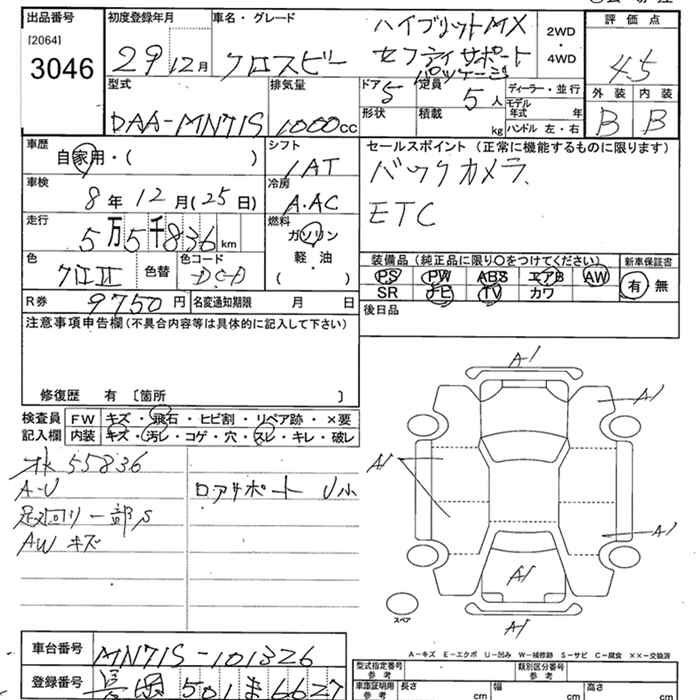 出品番号 初度登録年月 車名・グレード 評価点
[2064] 29 12月 クロスビー ハイブリットMX 2WD
3046 セフティサポート ・ 4.5
パッケージ 4WD
型式 排気量 ドア 5 定員 5人 ディーラー・並行 外装 内装
DAA-MN71S 1000cc 形状 積載 kg モデル年式 年 B B
ハンドル 左・右
車歴 シフト セールスポイント(正常に機能するものに限ります)
自家用・( ) 1AT バックカメラ、
車検 冷房 ETC
8年12月(25日) A.AC
走行 燃料
5万5千836km ガソリン
色 色コード 軽・油 装備品(純正品に限り○をつけてください) 新車保証書
クロII 色替 ( ) PS PW ABS エアB AW 有 無
SR ナビ TV カワ
R券 9750円 名変通知期限 月 日 後日品
注意事項申告欄(不具合内容等は具体的に記入して下さい)
修復歴 有 〔箇所 〕
検査員 FW キズ・飛石・ヒビ割・リペア跡・×要
記入欄 内装 キズ・汚レ・コゲ・穴・スレ・キレ・破レ
55836
A-U ロアサポート U小
足廻り一部S
AWキズ
A1
A1
A1
A1
A1
A1
スペア
A-キズ E-エクボ U-凹み W-補修跡 S-サビ C-腐食 ××-交換済
車台番号 MN71S-101326 型式指定番号 参考 類別区分番号 参考
登録番号 501 ま 6627 車庫証明用 参考 長さ cm 幅 cm 高さ cm